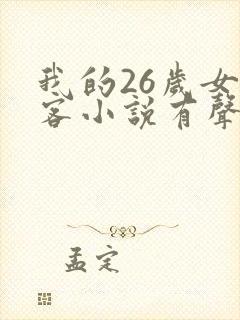 我的26歲女
客小說有聲
孟定